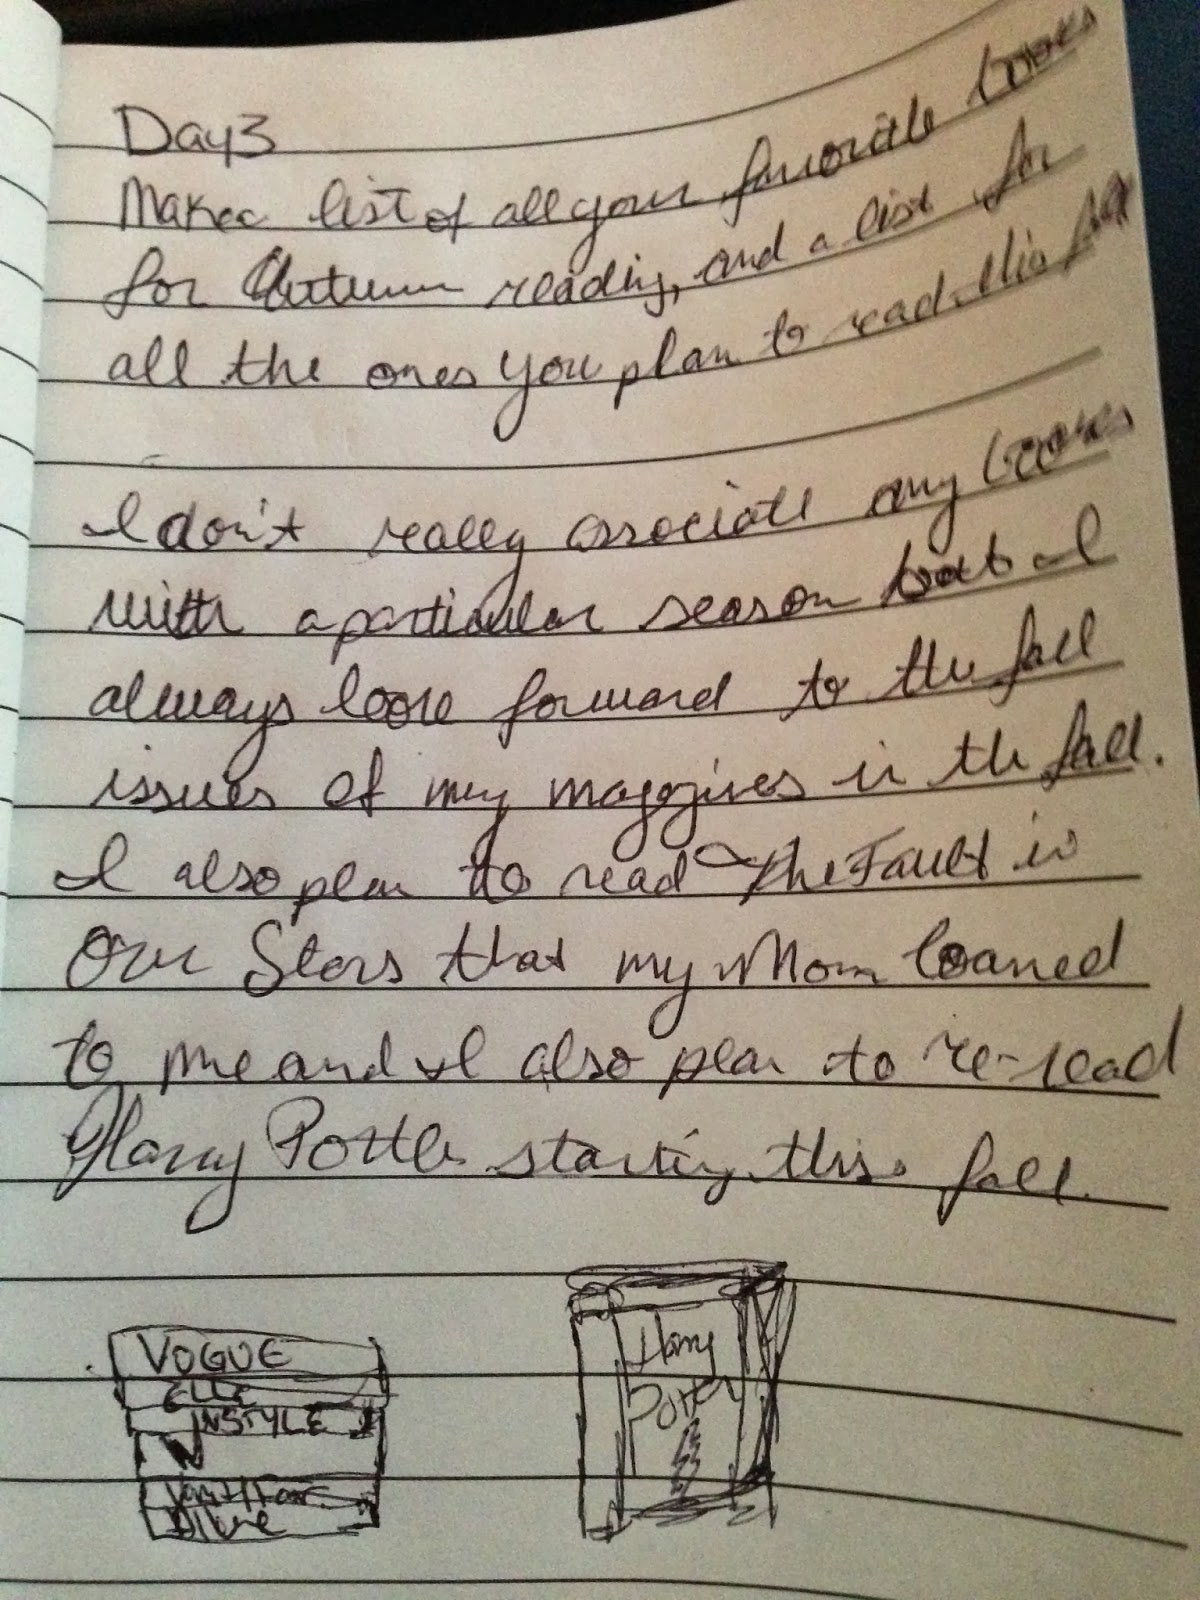 Day 3
Make a list of all your favorite books
for Autumn reading, and a list for
all the ones you plan to read this fall
I don't really associate any books
with a particular season but I
always look forward to the fall
issues of my magazines in the fall.
I also plan to read The Fault in
Our Stars that my Mom loaned
to me and I also plan to re-read
Harry Potter starting this fall.
VOGUE
ELLE
INSTYLE
W
Vanity Fair
Harry
Potter